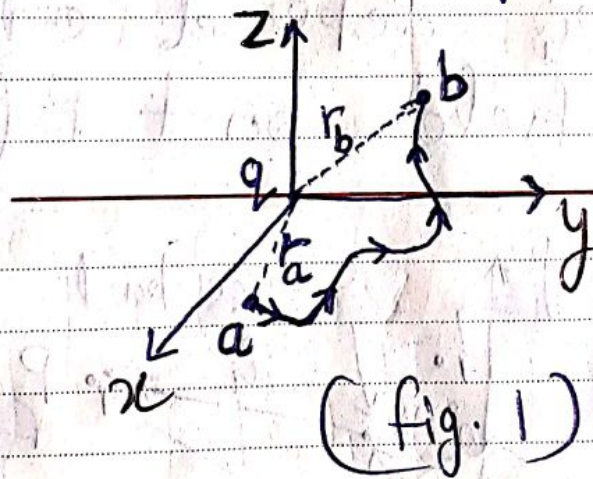 z
b
r_b
q
y
r_a
a
x
(fig. 1)